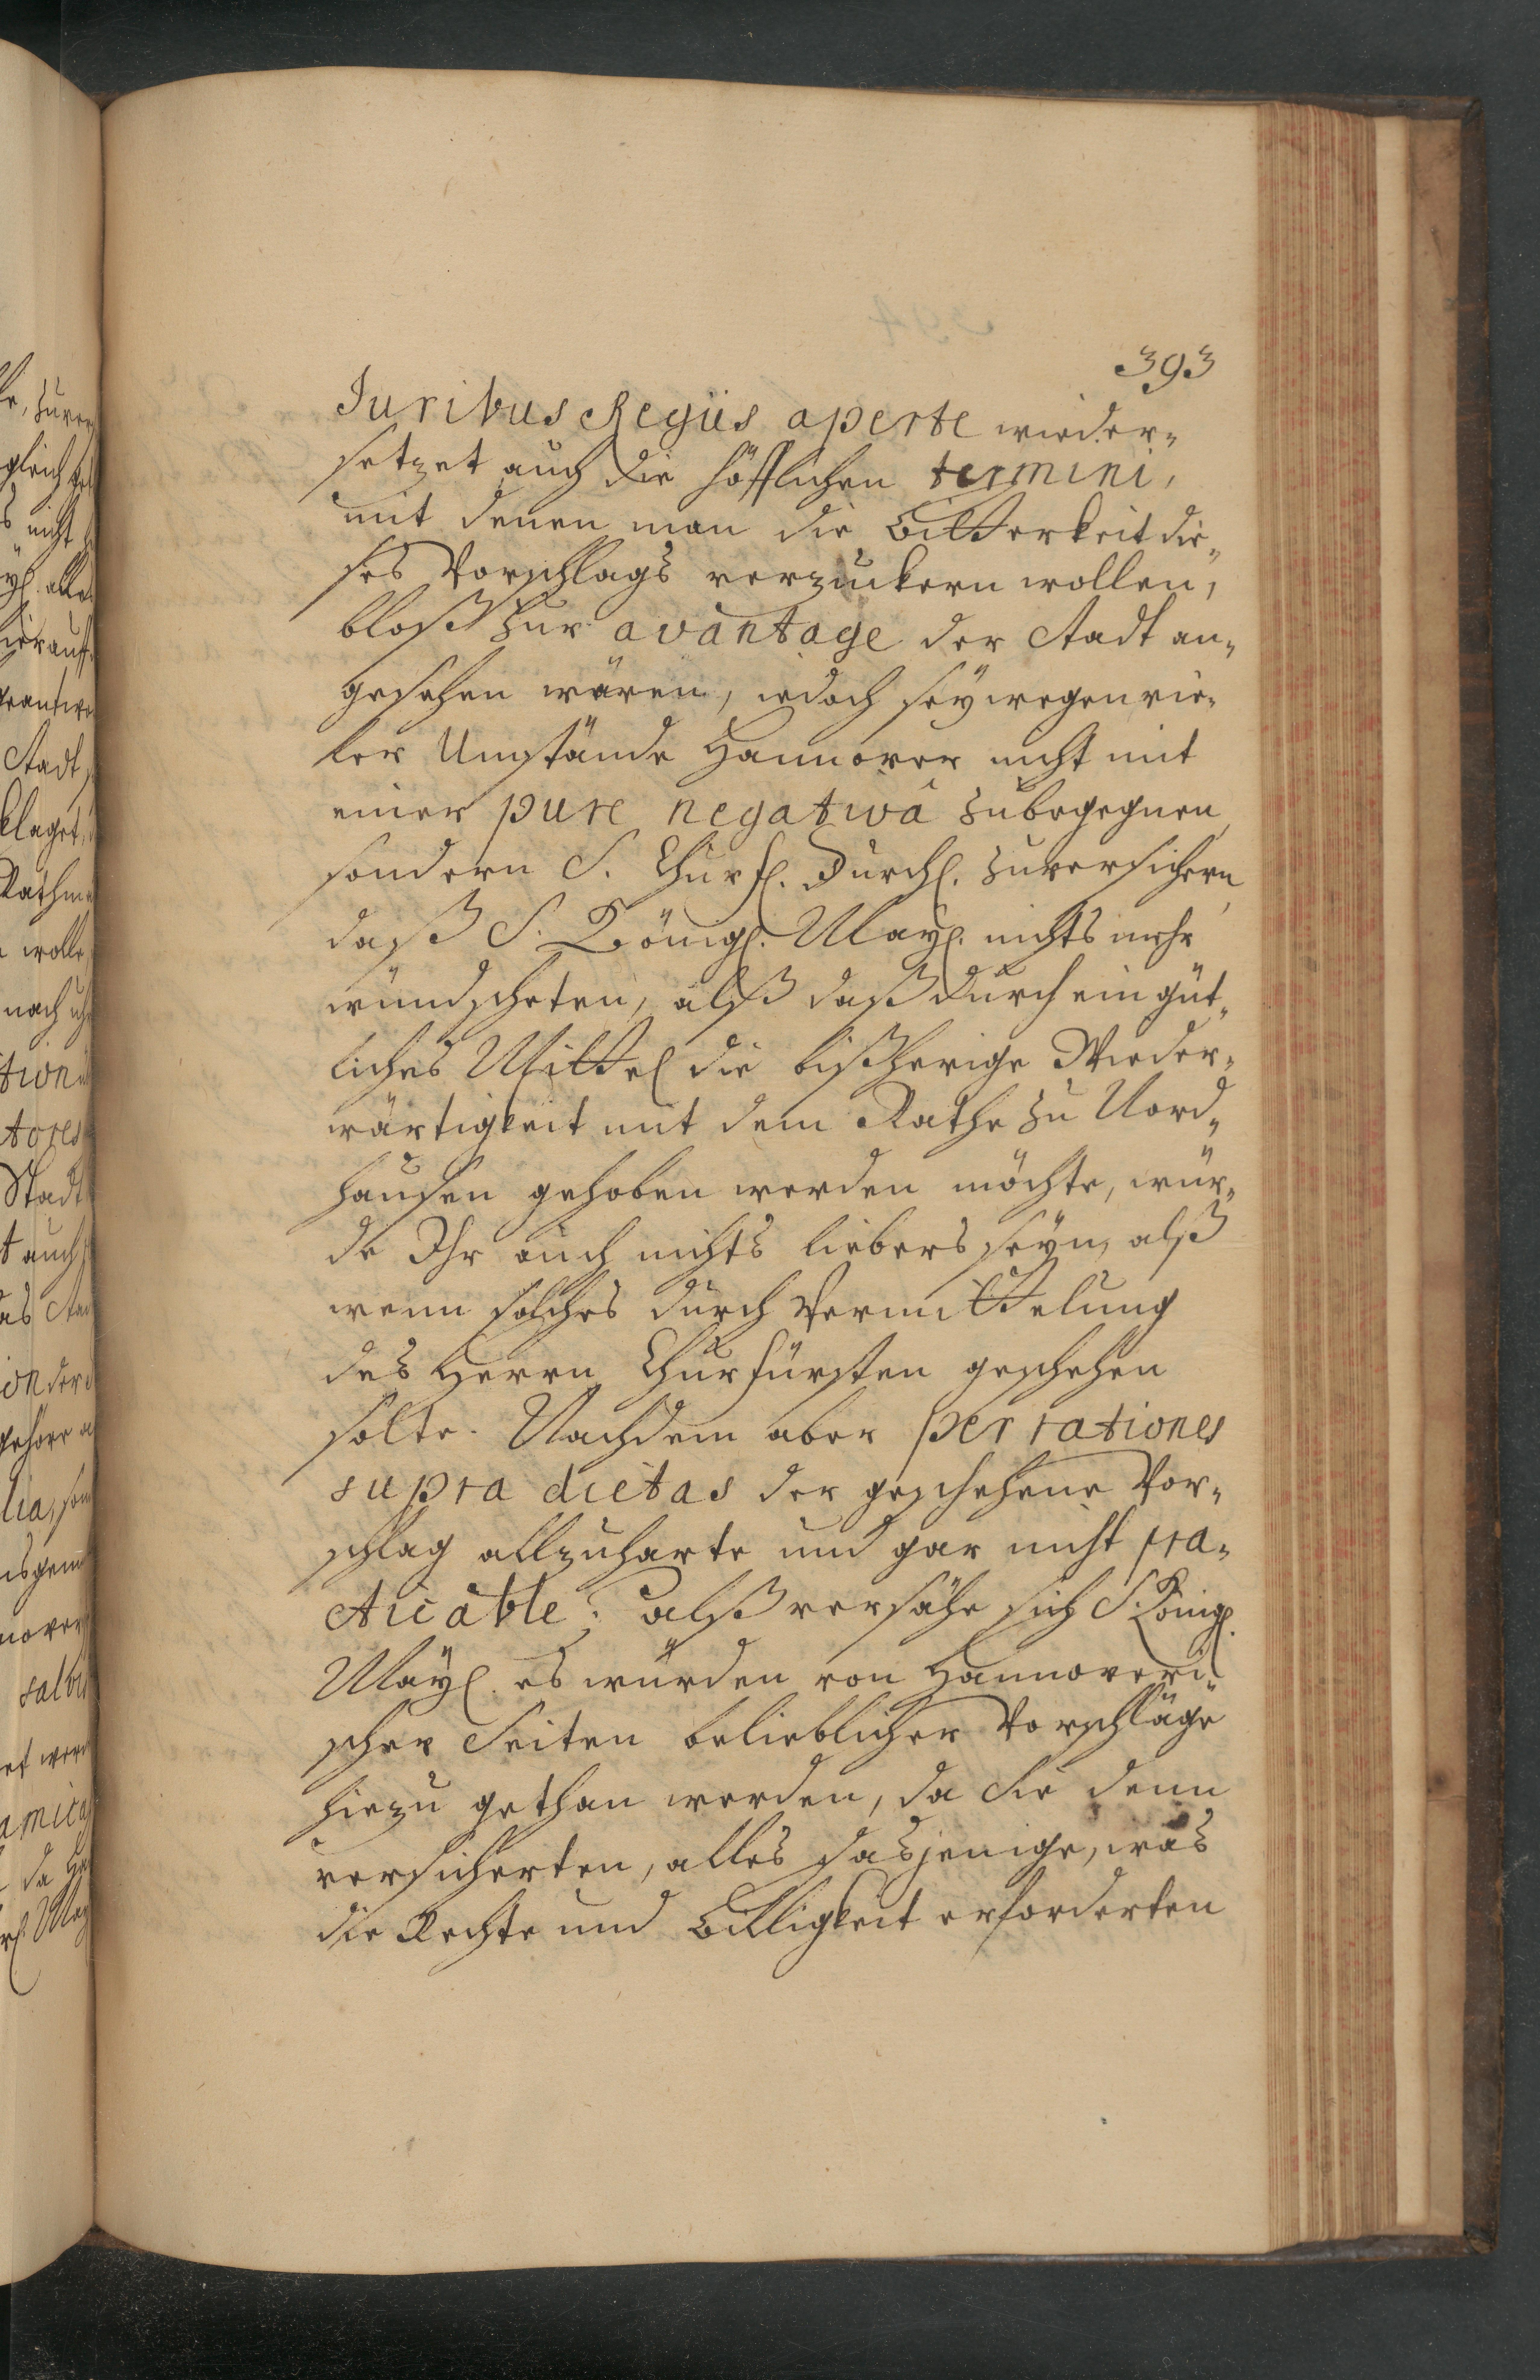 393
Juribus Regiis aperte wieder-
setzet auch die höfflichen termini,
mit denen man die Bitterkeit die-
ses Vorschlags verzuckern wollen,
bloß zur avantage der Stadt an-
gesehen wären, iedoch seÿ wegen vie-
ler Umstände Hannover nicht mit
einer pure negativâ zubegegnen,
sondern S. Churfl. Durchl. zuversichern,
daß S. Königl. Mayl. nichts mehr
wündscheten, alß daß durch ein güt-
liches Mittel die bißherige Wieder-
wärtigkeit mit dem Rathe zu Nord-
hausen gehoben werden möchte, wür-
de Ihr auch nichts liebers seÿn, alß
wenn solches durch Vermittelung
des Herrn Churfürsten geschehen
solte. Nachdem aber per rationes
supra dictas der geschehene Vor-
schlag allzuharte und gar nicht pra-
cticable; alß versähe sich S. Königl.
Maÿl. es würden von Hannoveri-
scher Seiten belieblicher Vorschläge
hiezu gethan werden, da Sie denn
versicherten, alles dasjenige, was
die Rechte und Billigkeit erforderten